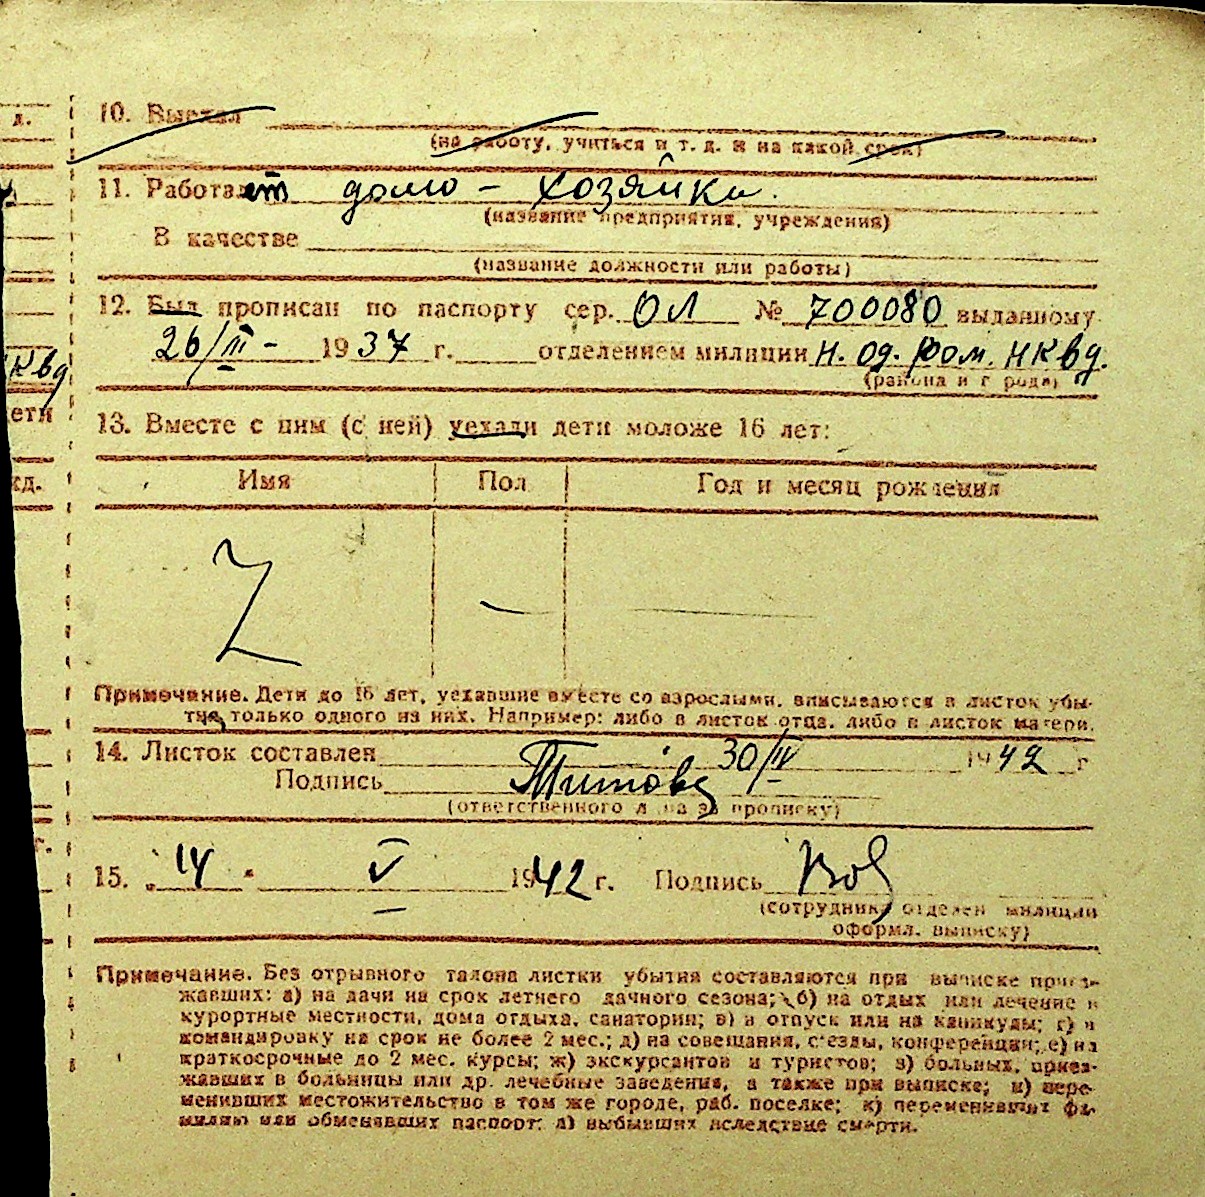 д.
10. Выехал
(на работу, учиться и т. д. и на какой срок)
11. Работает домо - хозяйки.
(название предприятия, учреждения)
В качестве
(название должности или работы)
12. Был прописан по паспорту сер. ОЛ № 700080 выданному
26/III - 1937 г. отделением милиции Н. Од. Ром. НКВД.
(района и города)
КВД
ети
13. Вместе с ним (с ней) уехали дети моложе 16 лет:
Имя Пол Год и месяц рождения
Z — —
Примечание. Дети до 16 лет, уехавшие вместе со взрослыми, вписываются в листок убы-
тия, только одного из них. Например: либо в листок отца, либо в листок матери.
14. Листок составлен 30/IV 1942 г
Подпись Титова
(ответственного лица за прописку)
15. 14 V 1942 г. Подпись
(сотрудника отделен милиции
оформл. выписку)
Примечание. Без отрывного талона листки убытия составляются при выписке приез-
жавших: а) на дачи на срок летнего дачного сезона; б) на отдых или лечение в
курортные местности, дома отдыха, санатории; в) в отпуск или на каникулы; г) в
командировку на срок не более 2 мес.; д) на совещания, съезды, конференции; е) на
краткосрочные до 2 мес. курсы; ж) экскурсантов и туристов; з) больных, приез-
жавших в больницы или др. лечебные заведения, а также при выписке; и) пере-
менивших местожительство в том же городе, раб. поселке; к) переменивших фа-
милию или обменявших паспорт; л) выбывших вследствие смерти.